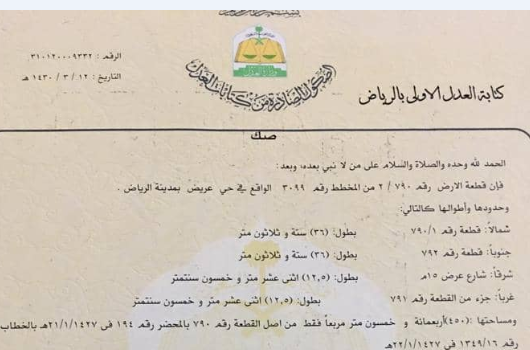 بسم الله الرحمن الرحيم
الرقم : ٣١٠١٢٠٠٠٩٣٣٢
التاريخ : ١٢ / ٣ / ١٤٣٠ هـ
الصكوك الصادرة من كتابات العدل
كتابة العدل الاولى بالرياض
صك
الحمد لله وحده والصلاة والسلام على من لا نبي بعده، وبعد:
فإن قطعة الارض رقم ٧٩٠ / ٢ من المخطط رقم ٣٠٩٩ الواقع في حي عريض بمدينة الرياض .
وحدودها وأطوالها كالتالي:
شمالاً: قطعة رقم ٧٩٠/١ بطول: (٣٦) ستة و ثلاثون متر
جنوباً: قطعة رقم ٧٩٢ بطول: (٣٦) ستة و ثلاثون متر
شرقاً: شارع عرض ١٥م بطول: (١٢,٥) اثنى عشر متر و خمسون سنتمتر
غرباً: جزء من القطعة رقم ٧٩١ بطول: (١٢,٥) اثنى عشر متر و خمسون سنتمتر
ومساحتها :(٤٥٠)أربعمائة و خمسون متر مربعاً فقط من اصل القطعة رقم ٧٩٠ بالمحضر رقم ١٩٤ في ٢١/١/١٤٢٧هـ بالخطاب
رقم ١٣٤٩/١٦ في ٢٢/١/١٤٢٧هـ